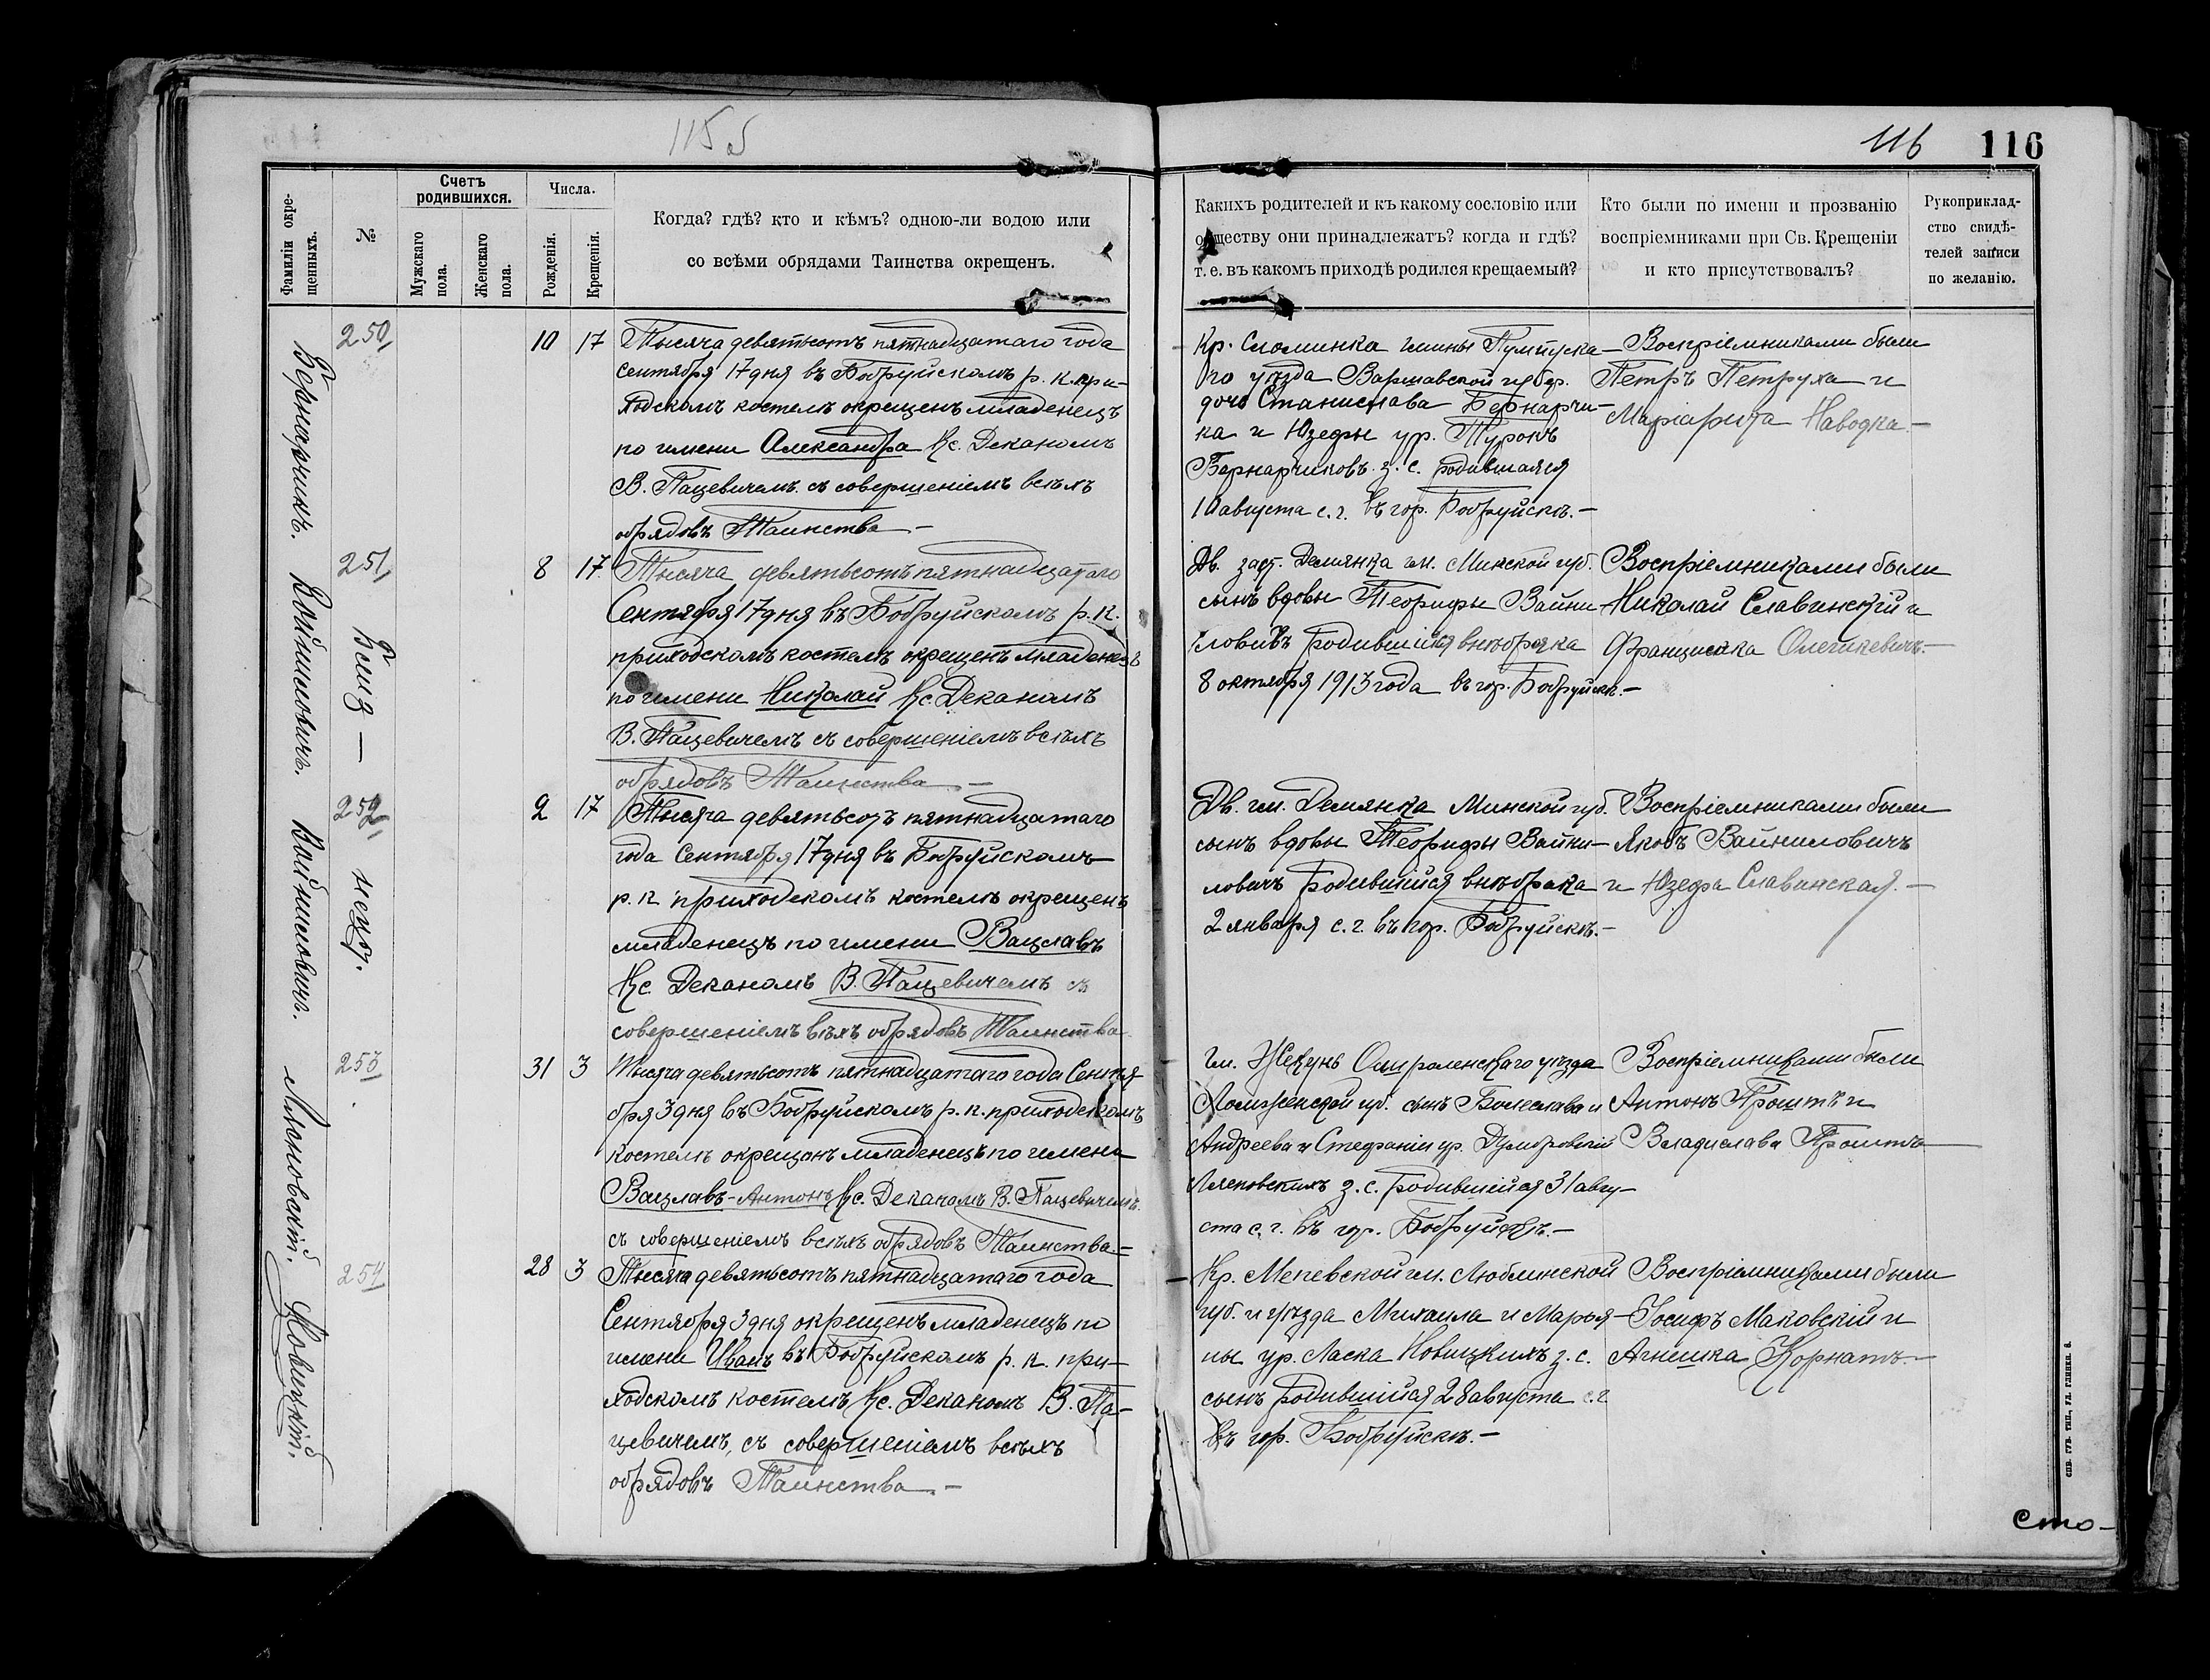 115 б
116 116
Фамиліи окре-
щенныхъ.
№
Счетъ
родившихся.
Мужскаго
пола.
Женскаго
пола.
Числа.
Рожденія.
Крещенія.
Когда? гдѣ? кто и кѣмъ? одною-ли водою или
со всѣми обрядами Таинства окрещенъ.
Какихъ родителей и къ какому сословію или
обществу они принадлежатъ? когда и гдѣ?
т. е. въ какомъ приходѣ родился крещаемый?
Кто были по имени и прозванію
воспріемниками при Св. Крещеніи
и кто присутствовалъ?
Рукоприклад-
ство свидѣ-
телей записи
по желанію.
Бернарчикъ.
250
10 17
Тысяча девятьсотъ пятнадцатаго года
Сентября 17 дня въ Бобруйскомъ р. к. при-
ходскомъ костелѣ окрещенъ младенецъ
по имени Александра Кс. Деканомъ
В. Пацевичемъ съ совершеніемъ всѣхъ
обрядовъ Таинства –
Кр. Сломинка гмины Пултуска-
го уѣзда Варшавской губер.
дочь Станислава Бернарчи-
ка и Юзефы ур. Турокъ
Бернарчиковъ з. с. родившаяся
10 августа с. г. въ гор. Бобруйскѣ. –
Воспріемниками были
Петръ Петруха и
Наводка. –
Войниловичъ.
251
8 17
Тысяча девятьсотъ пятнадцатаго
Сентября 17 дня въ Бобруйскомъ р. к.
приходскомъ костелѣ окрещенъ младенецъ
по имени Николай Кс. Деканомъ
В. Пацевичемъ съ совершеніемъ всѣхъ
обрядовъ Таинства. –
Дв. Демянка им. Минской губ.
сынъ вдовы Теофифы Войни-
ловичъ родившійся внѣ брака
8 октября 1913 года въ гор. Бобруйскѣ. –
Воспріемниками были
Николай Славинскій и
Франциска Олешкевичъ. –
Войниловичъ.
252
2 17
Тысяча девятьсотъ пятнадцатаго
года Сентября 17 дня въ Бобруйскомъ
р. к. приходскомъ костелѣ окрещенъ
младенецъ по имени Вацлавъ
Кс. Деканомъ В. Пацевичемъ съ
совершеніемъ всѣхъ обрядовъ Таинства
Дв. им. Демянка Минской губ.
сынъ вдовы Теофифы Войни-
ловичъ родившійся внѣ брака
2 января с. г. въ гор. Бобруйскѣ. –
Воспріемниками были
Яковъ Войниловичъ
и Юзефа Славинская. –
Ляповскій.
253
31 3
Тысяча девятьсотъ пятнадцатаго года Сентя-
бря 3 дня въ Бобруйскомъ р. к. приходскомъ
костелѣ окрещенъ младенецъ по имени
Вацлавъ-Антонъ Кс. Деканомъ В. Пацевичемъ
съ совершеніемъ всѣхъ обрядовъ Таинства. –
Гм. Жекунь Остроленскаго уѣзда
Ломженской губ. сынъ Болеслава и
Андреева и Стефаніи ур. Думбровскій
Ляповскихъ з. с. родившійся 31 авгу-
ста с. г. въ гор. Бобруйскѣ. –
Воспріемниками были
Антонъ Проштъ и
Владислава Проштъ
Новицкій.
254
28 3
Тысяча девятьсотъ пятнадцатаго года
Сентября 3 дня окрещенъ младенецъ по
имени Иванъ въ Бобруйскомъ р. к. при-
ходскомъ костелѣ Кс. Деканомъ В. Па-
цевичемъ, съ совершеніемъ всѣхъ
обрядовъ Таинства. –
Кр. Мелевской гм. Люблинской
губ. и уѣзда Михаила и Марья-
ны ур. Ласка Новицкихъ з. с.
сынъ родившійся 28 августа с. г.
въ гор. Бобруйскѣ. –
Воспріемниками были
Іосифъ Маковскій и
Агнешка Корнатъ. –
Сто-
СПБ. ГУБ. ТИП., УЛ. ГЛИНКИ. 6.